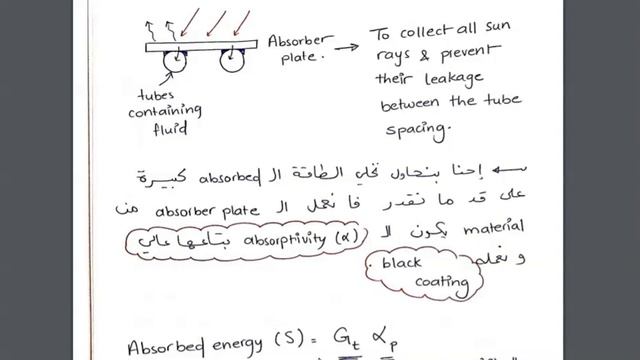 Absorber plate.
To collect all sun
rays & prevent
their leakage
between the tube
spacing.
tubes
containing
fluid
إحنا بنحاول نخلي الطاقة الـ absorbed كبيرة
على قد ما نقدر فا نعمل الـ absorber plate من
material يكون الـ absorptivity (α) بتاعها عالي
و نعمله black coating
Absorbed energy (S) = Gt αp